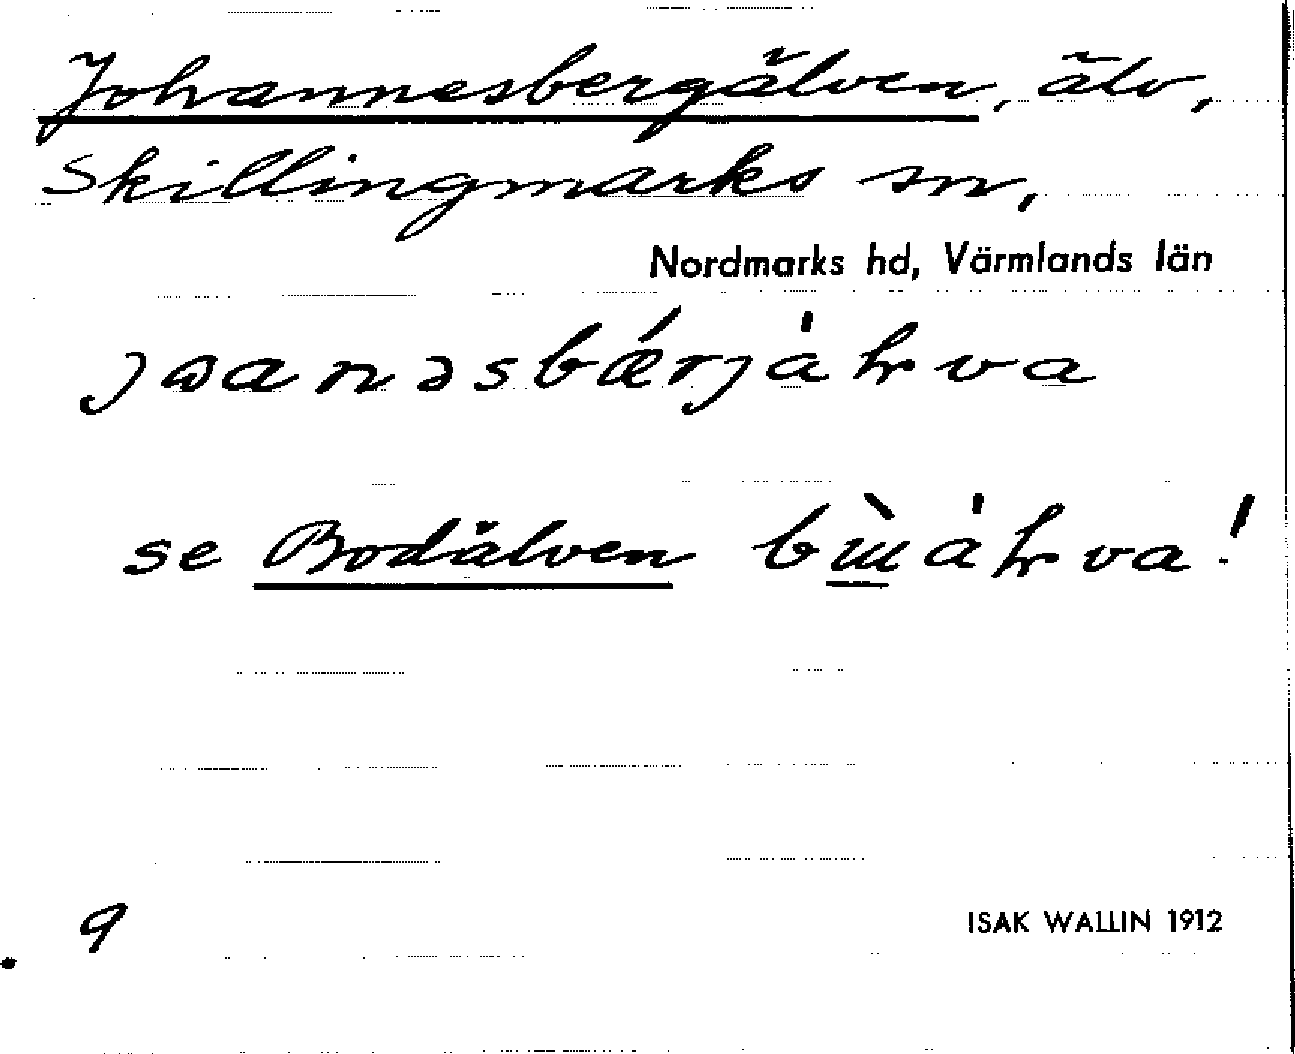 Johannesbergälven, älv,
Skillingmarks sn,
Nordmarks hd, Värmlands län
se Bodälven
9
ISAK WALLIN 1912